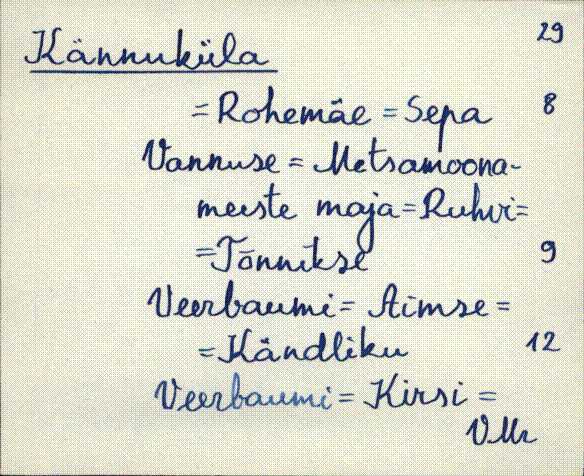 Kännuküla 29
= Rohemäe = Sepa 8
Vannuse = Metsamoona-
meeste maja = Ruhvi =
= Tõnnikse 9
Veerbaumi = Aimse =
= Kändliku 12
Veerbaumi = Kirsi =